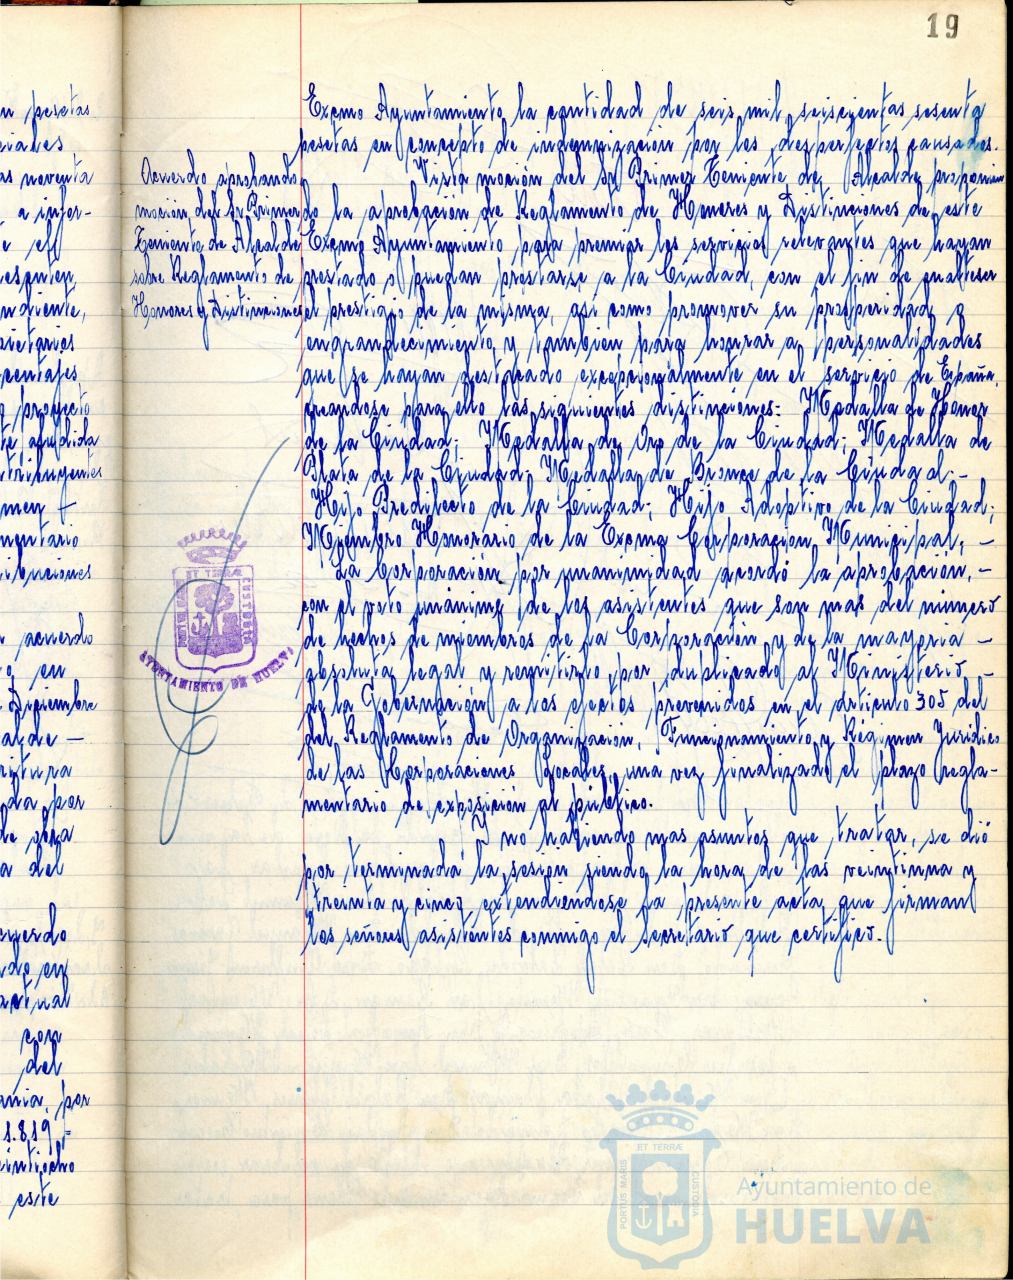 19
n pesetas
iales
as noventa
a infor-
e el
espenten
ndiente,
pietarios
centajes
proyecto
te aludida
tribuyentes
men
mentario
ibuciones
acuerdo
en
Diciembre
alde —
ritura
da por
de obra
a del
cuerdo
do en
actual
con
del
ania, por
1.819
eintiocho
este
Acuerdo aprobando
moción del Sr Primer
Teniente de Alcalde
sobre Reglamento de
Honores y Distinciones
Excmo Ayuntamiento la cantidad de seis mil seiscientas sesenta
pesetas en concepto de indemnización por los desperfectos causados.
Vista moción del Sr Primer Teniente de Alcalde proponien
do la aprobación de Reglamento de Honores y Distinciones de este
Excmo Ayuntamiento para premiar los servicios relevantes que hayan
prestado o puedan prestarse a la Ciudad, con el fin de enaltecer
el prestigio de la misma, asi como promover su prosperidad o
engrandecimiento, y tambien para honrar a personalidades
que se hayan destacado excepcionalmente en el servicio de España,
creandose para ello las siguientes distinciones: Medalla de Honor
de la Ciudad; Medalla de Oro de la Ciudad; Medalla de
Plata de la Ciudad; Medalla de Bronce de la Ciudad; —
Hijo Predilecto de la Ciudad; Hijo Adoptivo de la Ciudad;
Miembro Honorario de la Excma Corporación Municipal. —
La Corporación por unanimidad acordó la aprobación, —
con el voto unánime de los asistentes que son mas del número
de hechos de miembros de la Corporación y de la mayoria —
absoluta legal y remitirlo por duplicado al Ministerio —
de la Gobernación a los efectos prevenidos en el artículo 305 del
del Reglamento de Organización, Funcionamiento y Régimen Jurídico
de las Corporaciones Locales, una vez finalizado el plazo regla-
mentario de exposición al público.
Y no habiendo mas asuntos que tratar, se dió
por terminada la sesion siendo la hora de las veintiuna y
treinta y cinco extendiendose la presente acta que firman
los señores asistentes conmigo el secretario que certifico.
ET TERRÆ
CUSTODIA
AYUNTAMIENTO DE HUELVA
ET TERRÆ
PORTUS MARIS
CUSTODIA
Ayuntamiento de
HUELVA